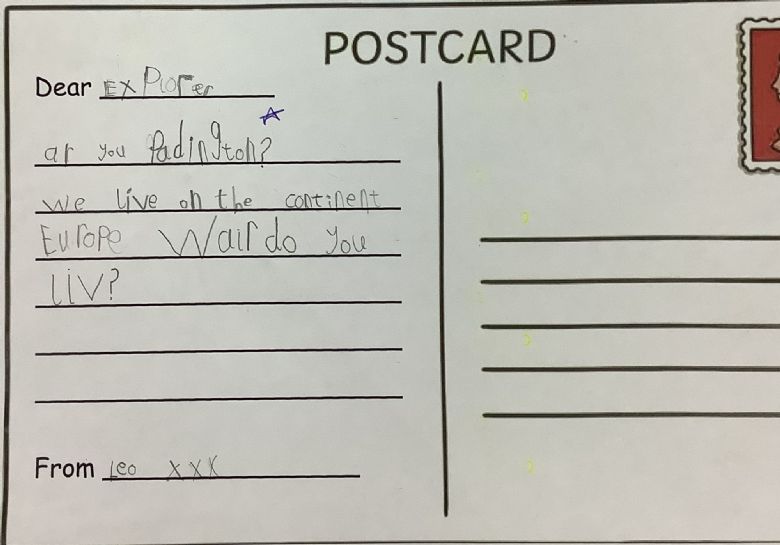 POSTCARD
Dear Explorer
ar you Padington?
we live on the continent
Europe Wair do you
Liv?
From Leo xxx